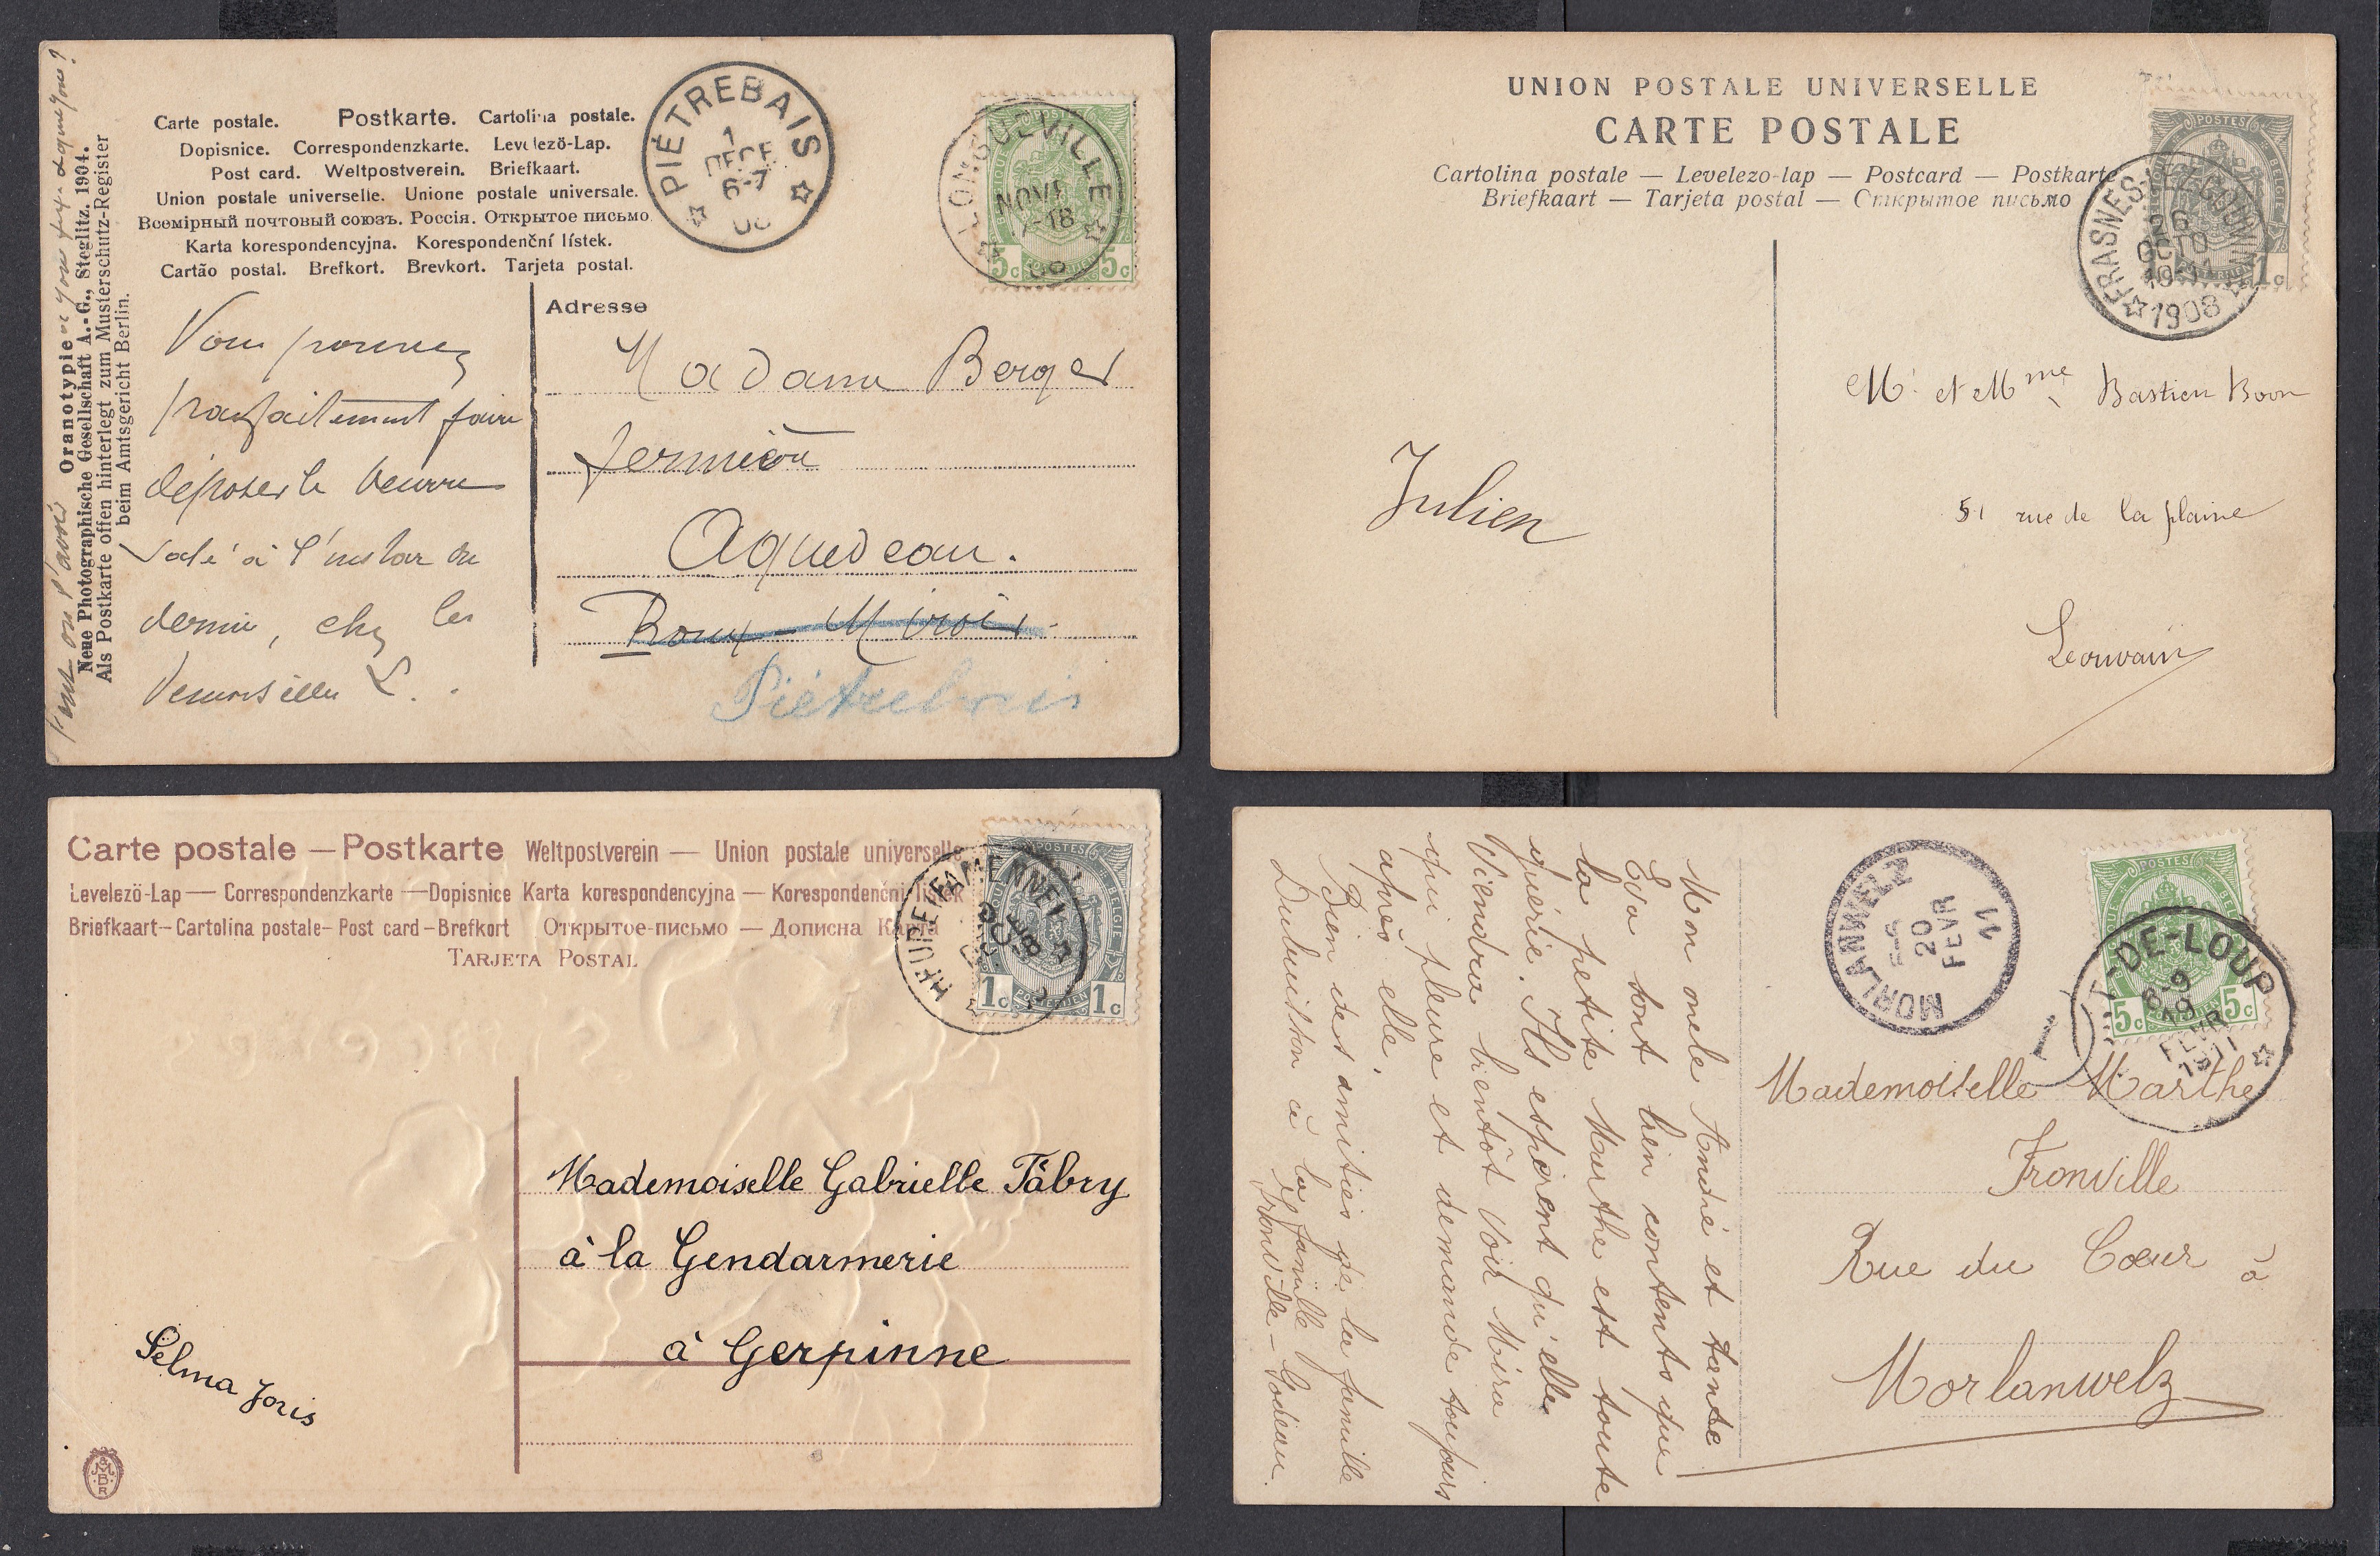 Carte postale. Postkarte. Cartolina postale.
Dopisnice. Correspondenzkarte. Levelezö-Lap.
Post card. Weltpostverein. Briefkaart.
Union postale universelle. Unione postale universale.
Всемірный почтовый союзъ. Россія. Открытое письмо
Karta korespondencyjna. Korespondenční lístek.
Cartão postal. Brefkort. Brevkort. Tarjeta postal.
Oranotypie
Neue Photographische Gesellschaft A.-G., Steglitz. 1904.
Als Postkarte offen hinterlegt zum Musterschutz-Register
beim Amtsgericht Berlin.
PIÉTREBAIS
1
DECE
6-7
LONGUEVILLE
NOVE
5c 5c
Adresse
Vous pouvez
parfaitement faire
déposer le beurre
salé à l'instar du
dernier, chez les
L.
Madame Berger
fermière
Aquedeau.
Roux-Miroir
Piétrebais
UNION POSTALE UNIVERSELLE
CARTE POSTALE
Cartolina postale — Levelezo-lap — Postcard — Postkarte
Briefkaart — Tarjeta postal — Открытое письмо
POSTES
BELGIE
1c
FRASNES-LEZ-GOUVIN
26
OCTO
10-11
1908
Mr et Mme Bastien Boon
51 rue de la plaine
Louvain
Julien
Carte postale — Postkarte Weltpostverein — Union postale universelle
Levelezö-Lap — Correspondenzkarte — Dopisnice Karta korespondencyjna — Korespondenční lístek
Briefkaart — Cartolina postale — Post card — Brefkort Открытое-письмо — Дописна Карта
TARJETA POSTAL
POSTES
BELGIE
1c POSTERIJEN 1c
Mademoiselle Gabrielle Fabry
à la Gendarmerie
à Gerpinne
Selma Joris
M
B
R
Mon oncle André et tante
Eva sont bien contents que
la petite Marthe est toute
guérie. Ils espèrent qu'elle
viendra bientôt voir Mira
qui pleure et demande toujours
après elle.
Bien des amitiés de la famille
Dubuisson à la famille
Fronville-Godeau.
MORLANWELZ
20
FEVR
11
POSTES
5c 5c
T-DE-LOUP
8-9
FEVR
1911
Mademoiselle Marthe
Fronville
Rue du Coeur à
Morlanwelz